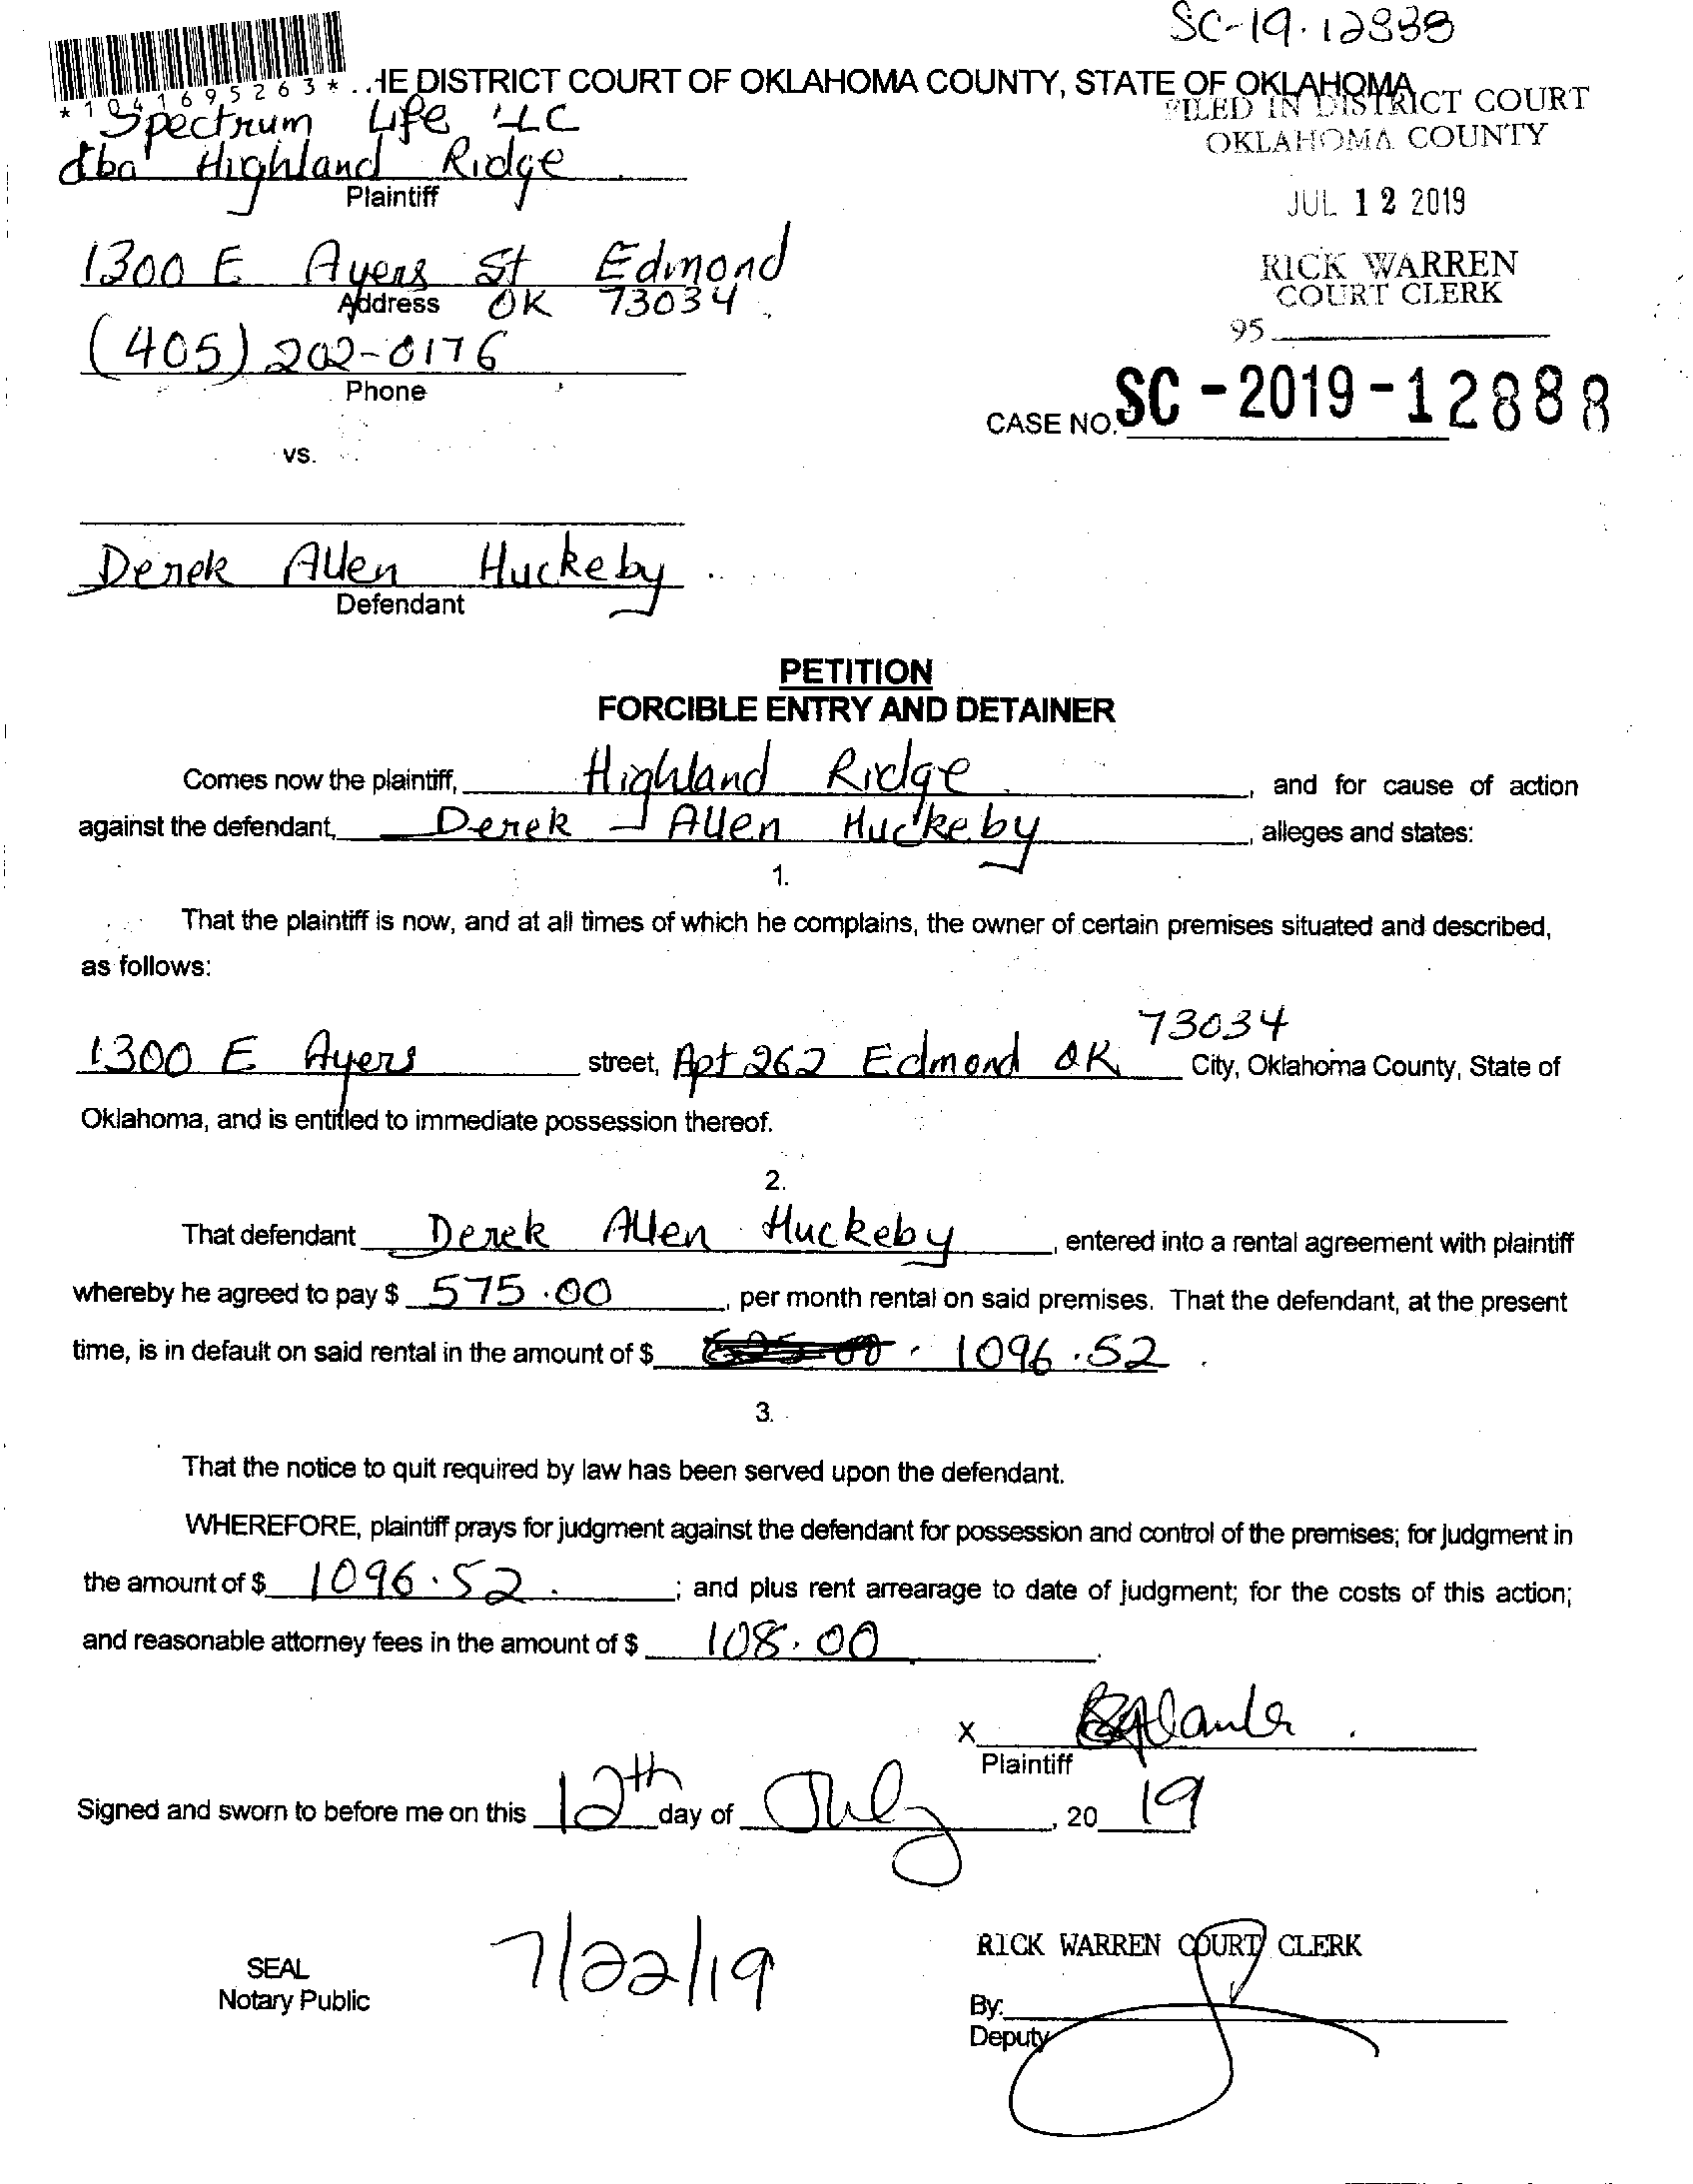 SC-19-12888
*1041695263* HE DISTRICT COURT OF OKLAHOMA COUNTY, STATE OF OKLAHOMA
FILED IN DISTRICT COURT
OKLAHOMA COUNTY
Spectrum Life LLC
dba Highland Ridge
Plaintiff
JUL 12 2019
1300 E Ayers St Edmond
Address OK 73034
RICK WARREN
COURT CLERK
95
(405) 202-0176
Phone
CASE NO. SC-2019-12888
vs.
Derek Allen Huckeby
Defendant
PETITION
FORCIBLE ENTRY AND DETAINER
Comes now the plaintiff, Highland Ridge, and for cause of action
against the defendant, Derek Allen Huckeby, alleges and states:
1.
That the plaintiff is now, and at all times of which he complains, the owner of certain premises situated and described,
as follows:
1300 E Ayers street, Apt 262 Edmond OK 73034 City, Oklahoma County, State of
Oklahoma, and is entitled to immediate possession thereof.
2.
That defendant Derek Allen Huckeby, entered into a rental agreement with plaintiff
whereby he agreed to pay $ 575.00, per month rental on said premises. That the defendant, at the present
time, is in default on said rental in the amount of $ 1096.52.
3.
That the notice to quit required by law has been served upon the defendant.
WHEREFORE, plaintiff prays for judgment against the defendant for possession and control of the premises; for judgment in
the amount of $ 1096.52; and plus rent arrearage to date of judgment; for the costs of this action;
and reasonable attorney fees in the amount of $ 108.00.
X
Plaintiff
Signed and sworn to before me on this 12th day of July, 2019
7/22/19
RICK WARREN COURT CLERK
SEAL
Notary Public
By:
Deputy